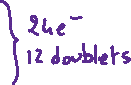 24e⁻
12 doublets